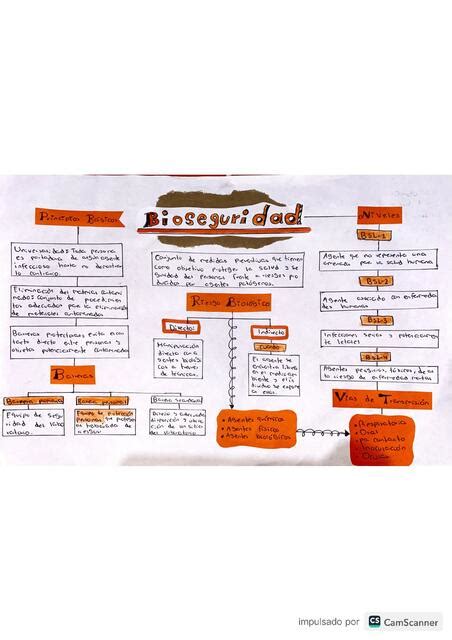 Bioseguridad
Principios Básicos
Universalidad: Toda persona
es portadora de algún agente
infeccioso hasta no demostrar
lo contrario.
Eliminación del material contami
nado: conjunto de procedimien
tos adecuados para la eliminación
de materiales contaminados
Barreras protectoras: evita el con
tacto directo entre personas y
objetos potencialmente contaminados
Barreras
Barrera primaria
Equipo de segu
ridad del labo
ratorio.
Equipo de protección
personal
Barrera secundaria
Diseño y
del laboratorio
Conjunto de medidas preventivas que tienen
como objetivo proteger la salud y se
guridad del personal frente a riesgos pro
ducidos por agentes patógenos.
Riesgo Biológico
Directo:
Manipulación
directa con a
gentes biológi
cos a través
de técnicas.
Indirecto
cuando
El agente se
encuentra libre
en el
mente y el in
dividuo se expone
Agentes químicos
Agentes físicos
Agentes biológicos
Niveles
BSL-1
Agente que no representa una
amenaza para la salud humana
BSL-2
Agente asociado con enfermeda
des humanas
BSL-3
Infecciones serias y potencialmen
te letales
BSL-4
Agentes peligrosos, tóxicos,
riesgo de enfermedad
Vías de Transmisión
Respiratoria
Oral
por contacto
Inoculación
Ocular
impulsado por CS CamScanner